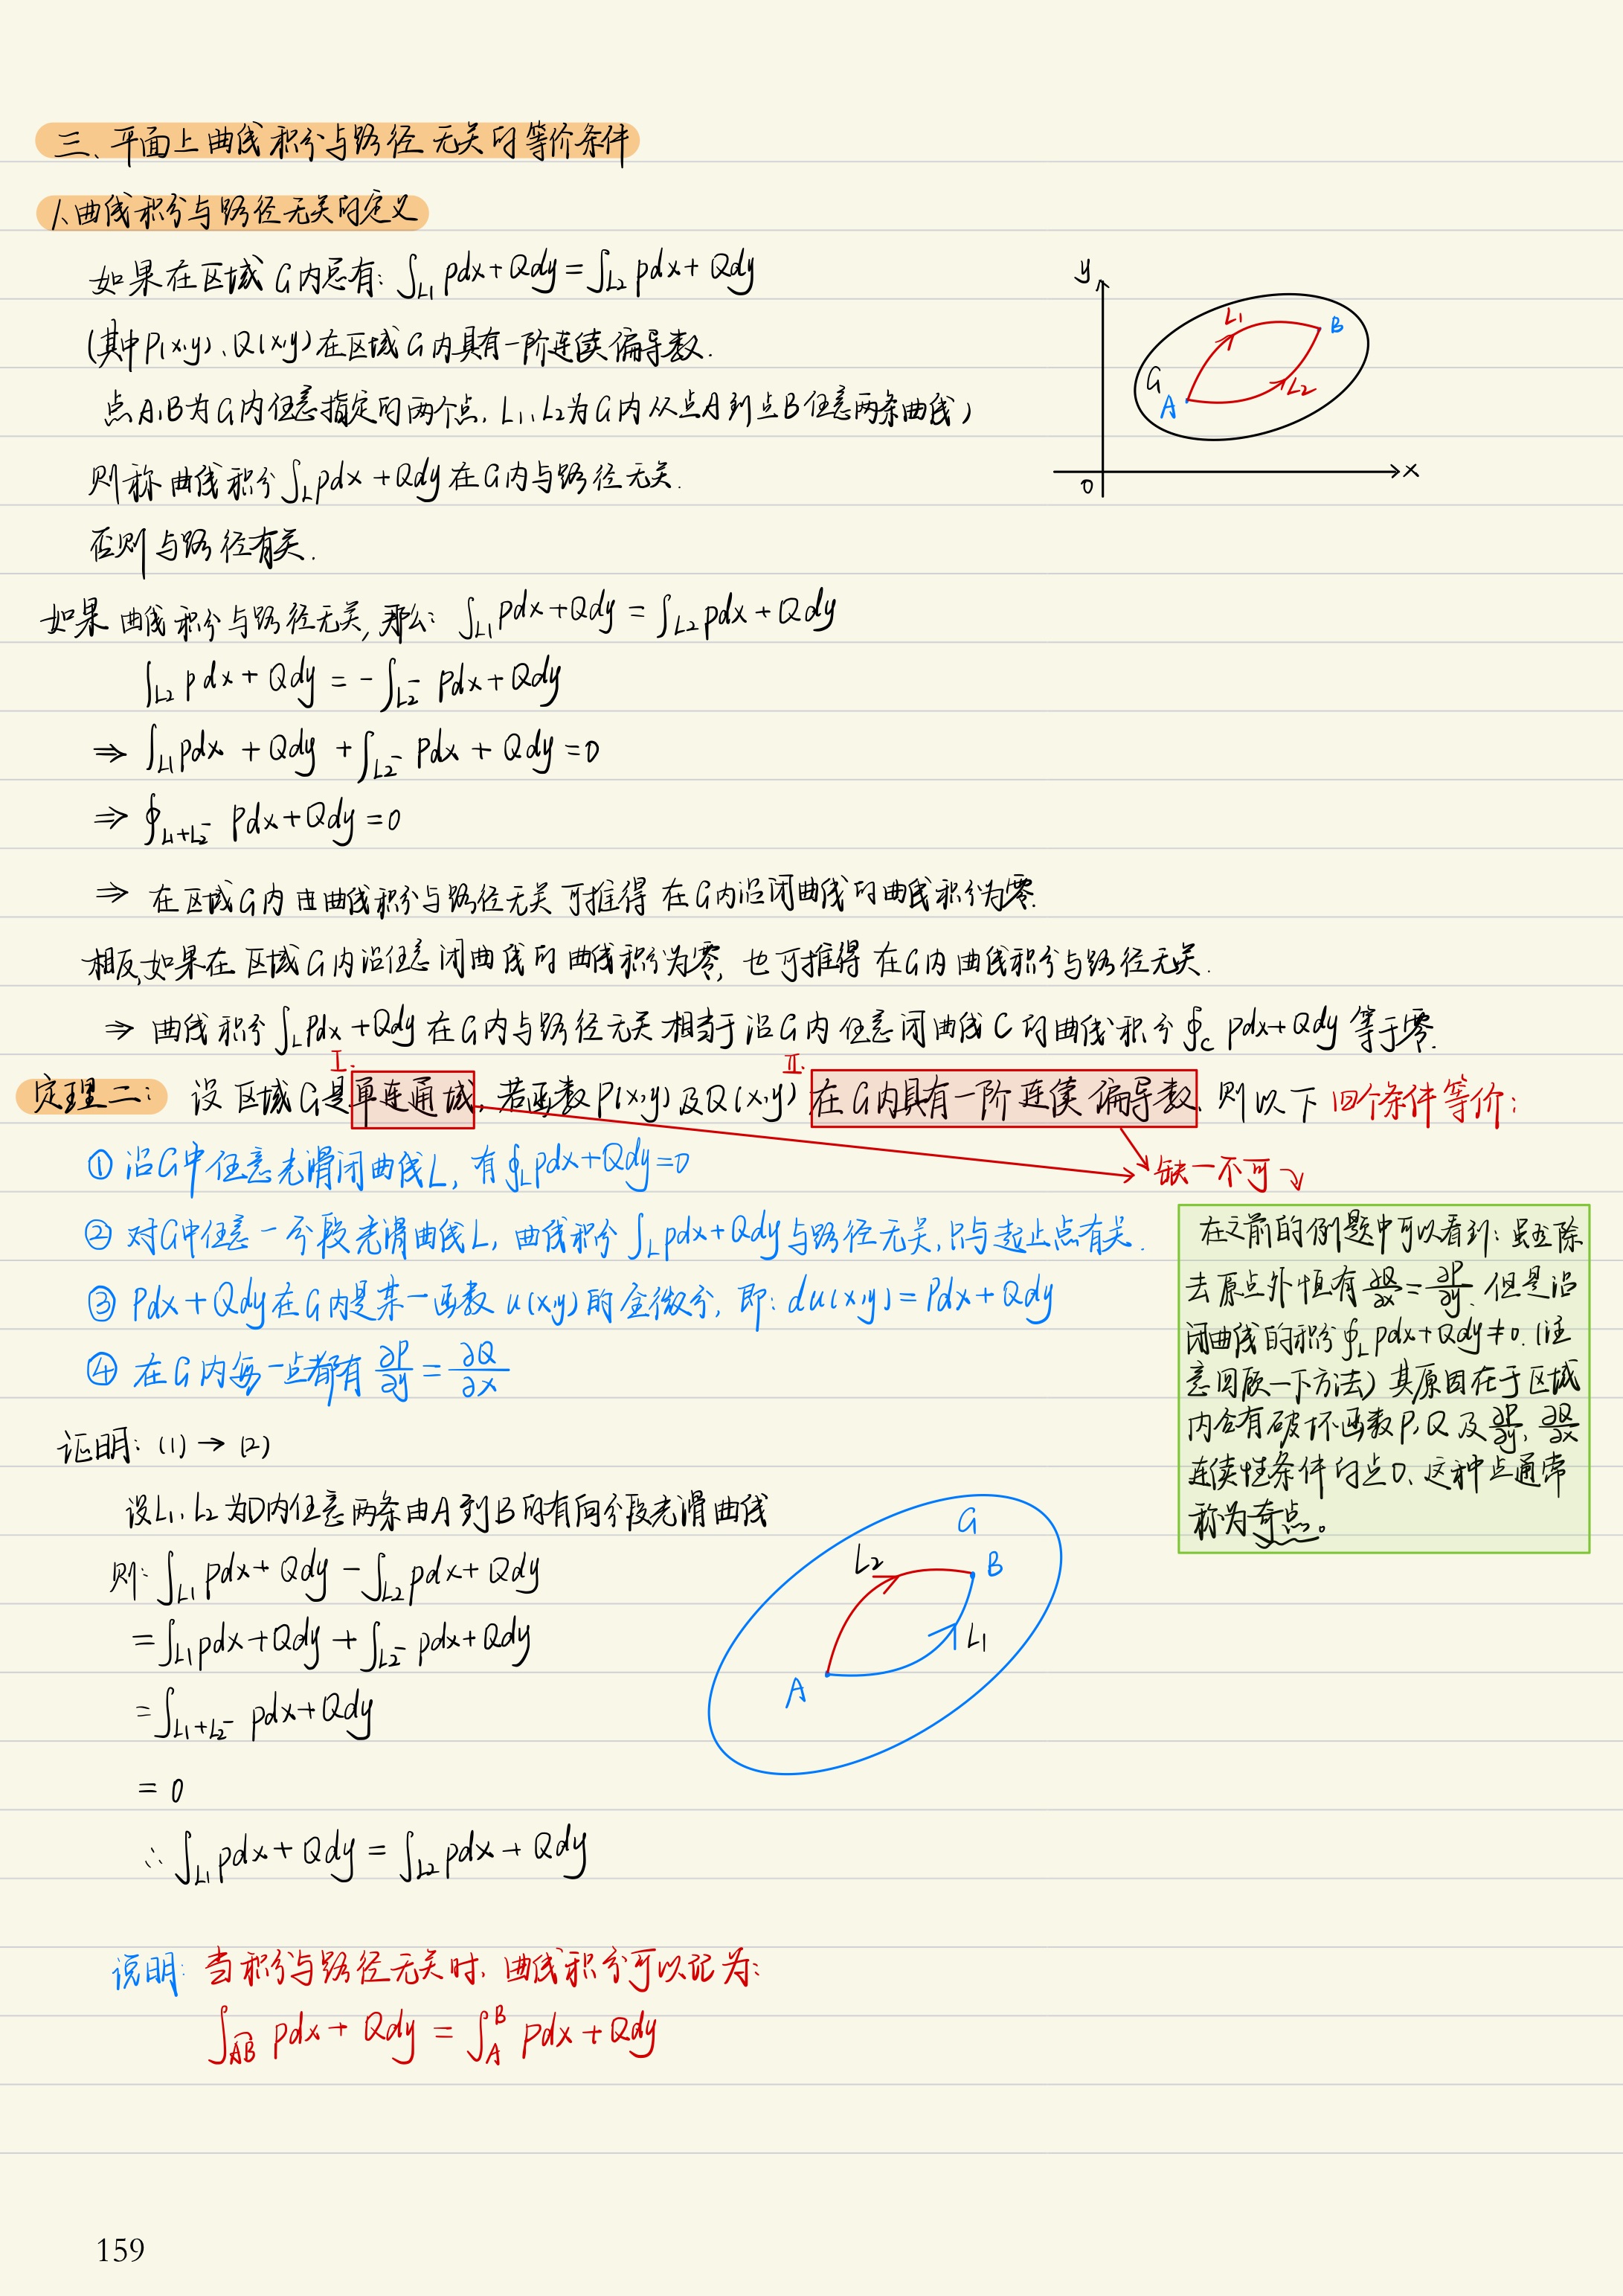 三、平面上曲线积分与路径无关的等价条件
1、曲线积分与路径无关的定义
如果在区域G内总有：∫_{L1} Pdx+Qdy=∫_{L2} Pdx+Qdy
(其中P(x,y)、Q(x,y)在区域G内具有一阶连续偏导数.
点A,B为G内任意指定的两个点, L1、L2为G内从点A到点B任意两条曲线)
则称曲线积分∫_L Pdx+Qdy在G内与路径无关.
否则与路径有关.
y
x
0
G
A
B
L1
L2
如果曲线积分与路径无关, 那么: ∫_{L1} Pdx+Qdy = ∫_{L2} Pdx+Qdy
∫_{L2} Pdx+Qdy = -∫_{L2^-} Pdx+Qdy
⇒ ∫_{L1} Pdx+Qdy+∫_{L2^-} Pdx+Qdy=0
⇒ ∮_{L1+L2^-} Pdx+Qdy=0
⇒ 在区域G内由曲线积分与路径无关可推得在G内沿闭曲线的曲线积分为零.
相反,如果在区域G内沿任意闭曲线的曲线积分为零, 也可推得在G内曲线积分与路径无关.
⇒ 曲线积分∫_L Pdx+Qdy在G内与路径无关相当于沿G内任意闭曲线C的曲线积分∮_C Pdx+Qdy等于零.
I.
II.
定理二: 设区域G是单连通域, 若函数P(x,y)及Q(x,y)在G内具有一阶连续偏导数, 则以下四个条件等价:
① 沿G中任意光滑闭曲线L, 有∮_L Pdx+Qdy=0
缺一不可
② 对G中任意一分段光滑曲线L, 曲线积分∫_L Pdx+Qdy与路径无关, 只与起止点有关.
③ Pdx+Qdy在G内是某一函数u(x,y)的全微分, 即: du(x,y)=Pdx+Qdy
④ 在G内每一点都有 ∂P/∂y=∂Q/∂x
在之前的例题中可以看到: 虽然除
去原点外恒有∂Q/∂x=∂P/∂y, 但是沿
闭曲线的积分∮_L Pdx+Qdy≠0. (注
意回顾一下方法) 其原因在于区域
内含有破坏函数P,Q及∂P/∂y, ∂Q/∂x
连续性条件的点O, 这种点通常
称为奇点。
证明: (1)→(2)
设L1、L2为D内任意两条由A到B的有向分段光滑曲线
则: ∫_{L1} Pdx+Qdy-∫_{L2} Pdx+Qdy
=∫_{L1} Pdx+Qdy+∫_{L2^-} Pdx+Qdy
=∫_{L1+L2^-} Pdx+Qdy
= 0
∴ ∫_{L1} Pdx+Qdy=∫_{L2} Pdx+Qdy
G
L2
B
L1
A
说明: 当积分与路径无关时, 曲线积分可以记为:
∫_{AB} Pdx+Qdy = ∫_A^B Pdx+Qdy
159